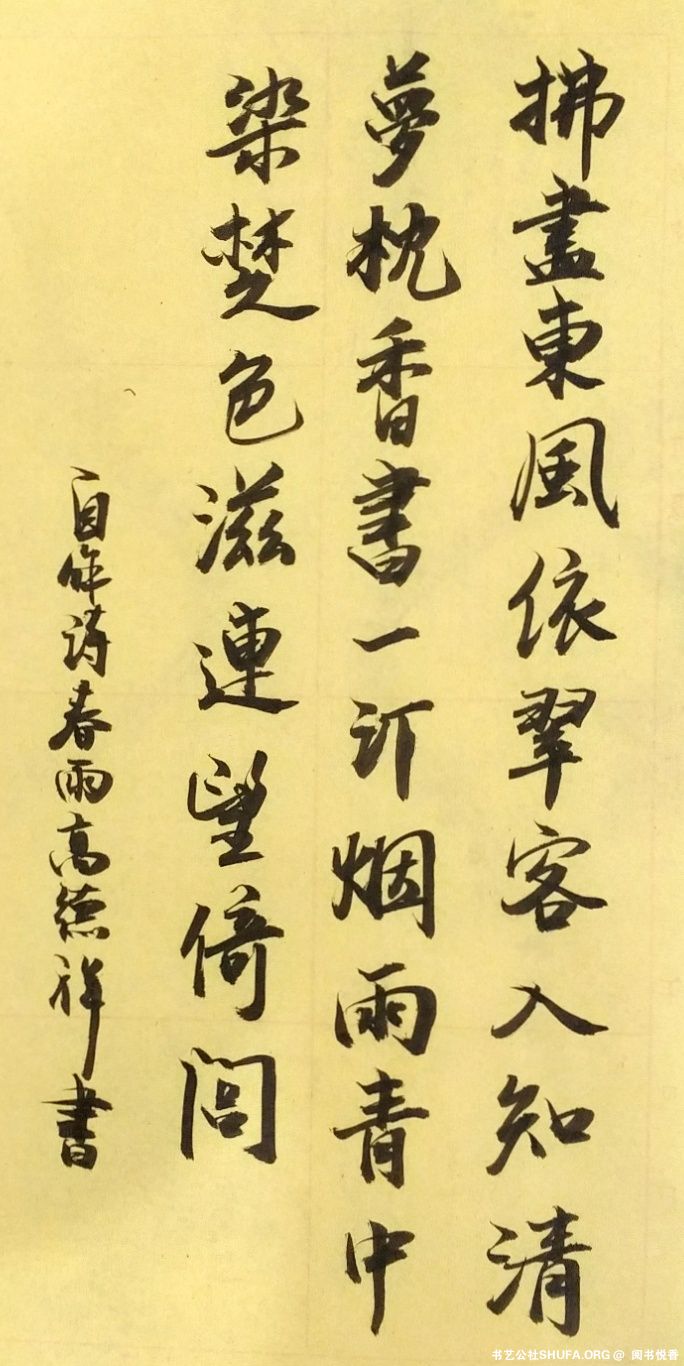 拂盡東風依翠客入知清
夢枕香書一訂烟雨青中
染楚色滋連望倚閭
自作詩春雨高德祥書
书艺公社SHUFA.ORG @ 阅书悦香